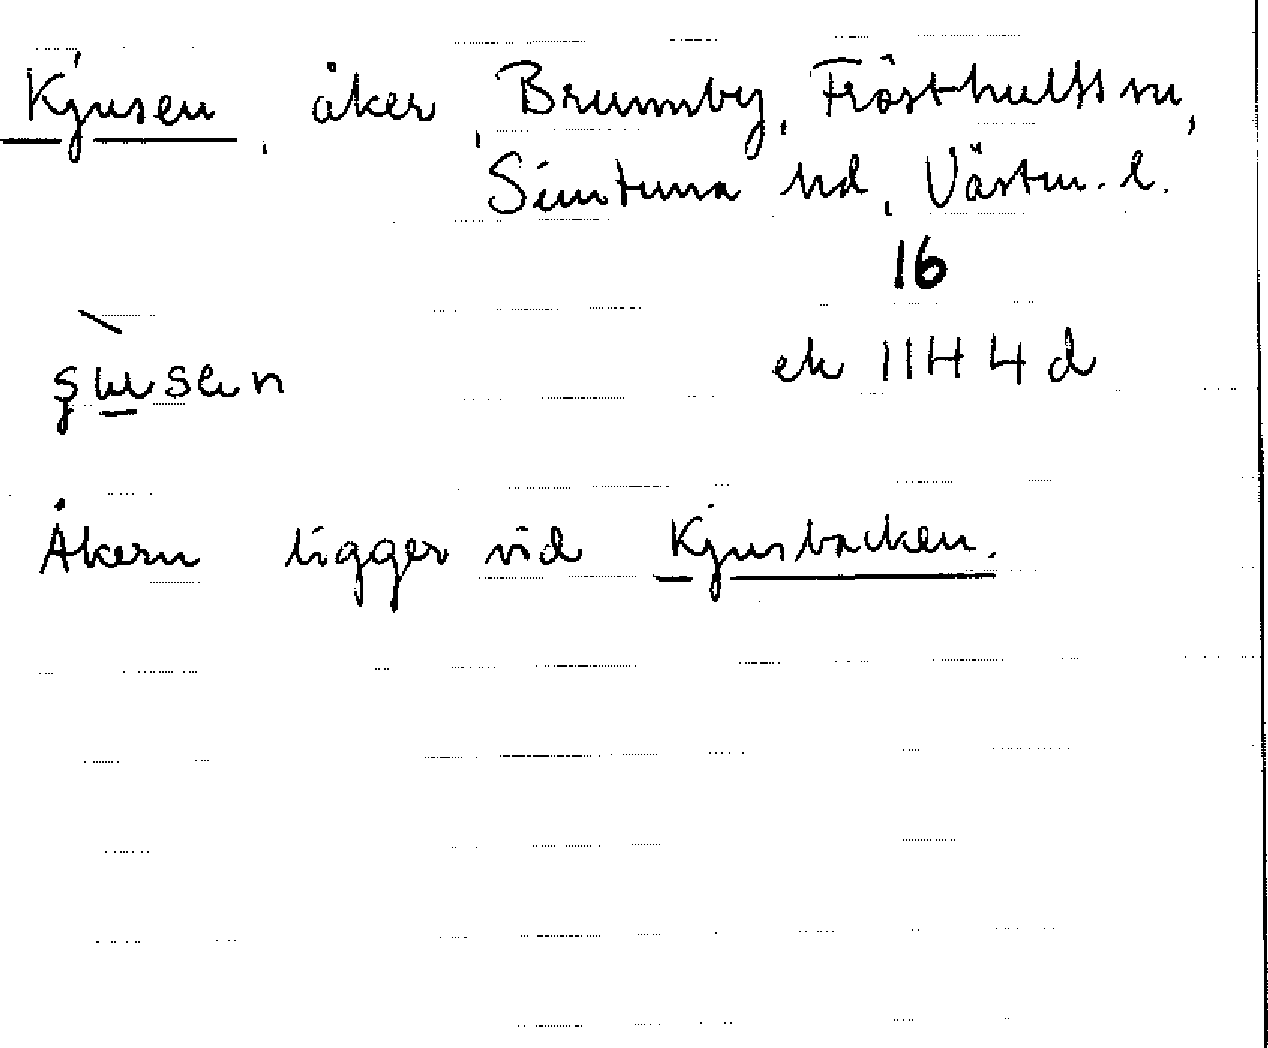 Kjusen, åker, Brunnby, Frösthults sn,
Simtuna hd, Västm. l.
16
ek 11H 4d
Åkern ligger vid Kjusbacken.